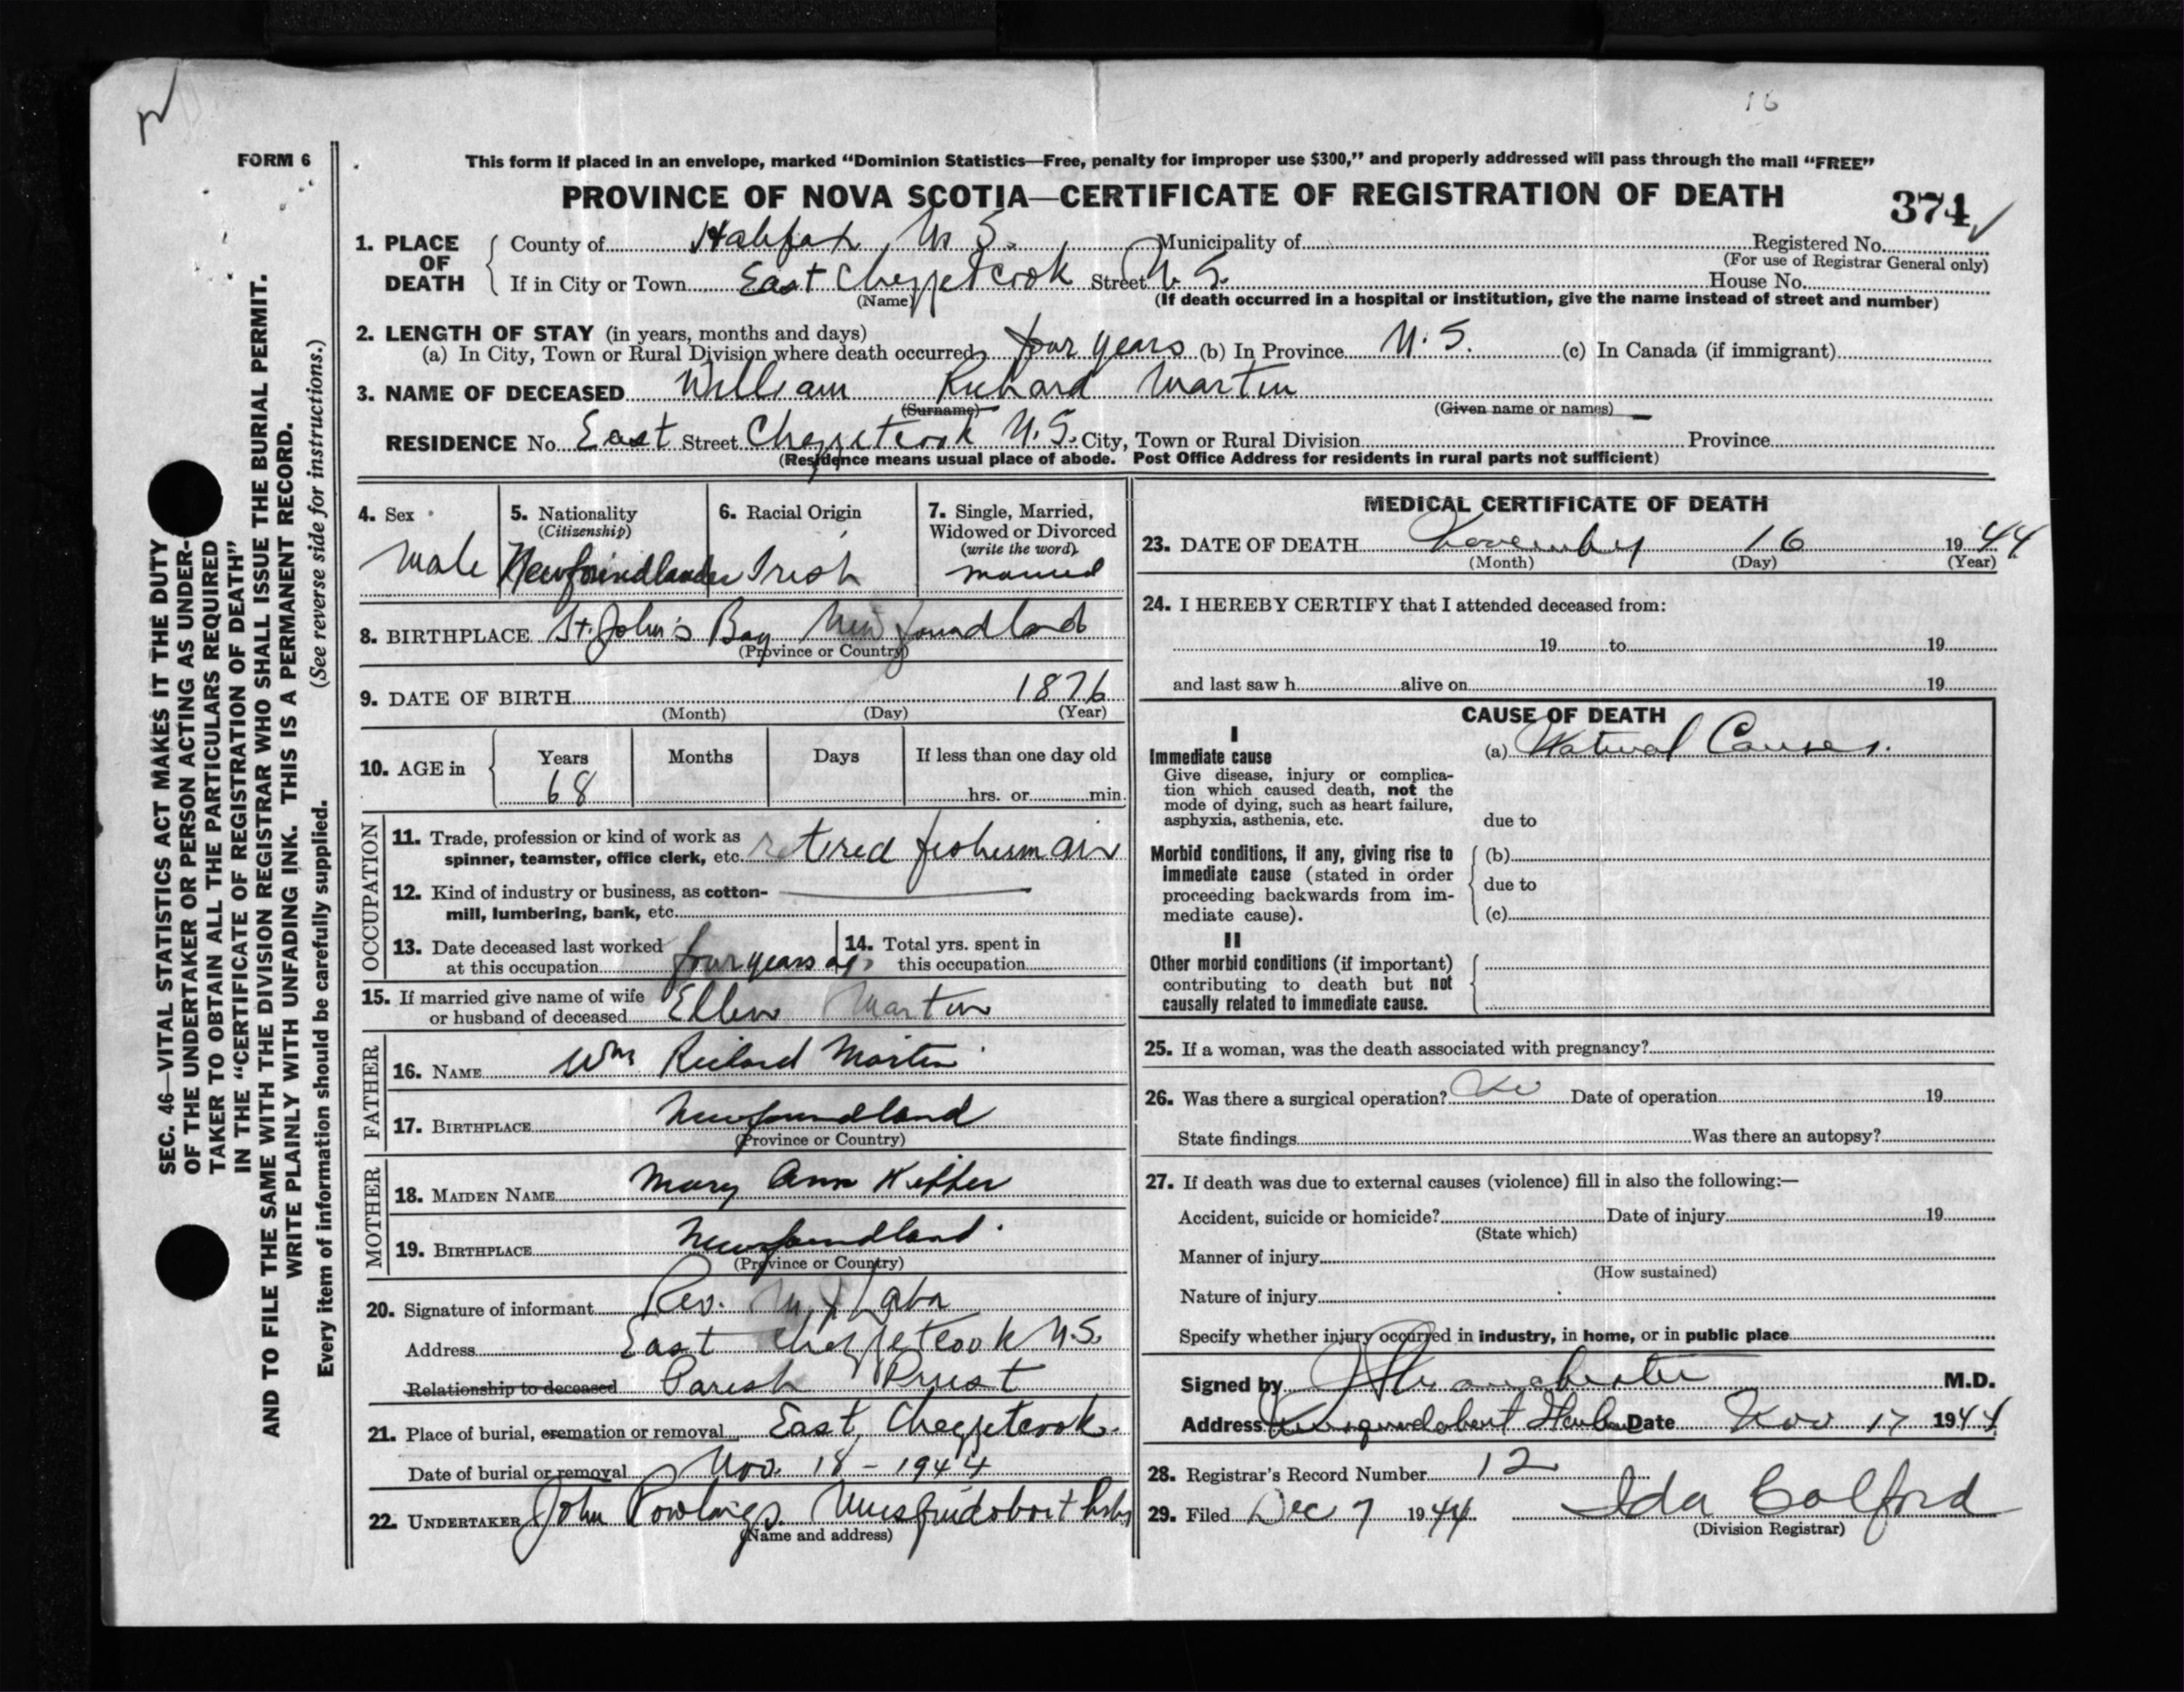 16
FORM 6
This form if placed in an envelope, marked “Dominion Statistics—Free, penalty for improper use $300,” and properly addressed will pass through the mail “FREE”
PROVINCE OF NOVA SCOTIA—CERTIFICATE OF REGISTRATION OF DEATH
374
1. PLACE OF DEATH
County of Halifax, N S. Municipality of Registered No.
(For use of Registrar General only)
If in City or Town East Chezzetcook Street N. S. House No.
(Name) (If death occurred in a hospital or institution, give the name instead of street and number)
2. LENGTH OF STAY (in years, months and days)
(a) In City, Town or Rural Division where death occurred four years (b) In Province N. S. (c) In Canada (if immigrant)
3. NAME OF DECEASED William Richard Martin
(Surname) (Given name or names)
RESIDENCE No. East Street Chezzetcook N. S. City, Town or Rural Division Province
(Residence means usual place of abode. Post Office Address for residents in rural parts not sufficient)
4. Sex
Male
5. Nationality
(Citizenship)
Newfoundlander
6. Racial Origin
Irish
7. Single, Married,
Widowed or Divorced
(write the word)
married
8. BIRTHPLACE St. John's Bay Newfoundland
(Province or Country)
9. DATE OF BIRTH 1876
(Month) (Day) (Year)
10. AGE in
Years Months Days If less than one day old
68 hrs. or min.
OCCUPATION
11. Trade, profession or kind of work as
spinner, teamster, office clerk, etc. retired fisherman
12. Kind of industry or business, as cotton-
mill, lumbering, bank, etc.
13. Date deceased last worked
at this occupation four years ago
14. Total yrs. spent in
this occupation
15. If married give name of wife
or husband of deceased Ellen Martin
FATHER
16. NAME Wm Richard Martin
17. BIRTHPLACE Newfoundland
(Province or Country)
MOTHER
18. MAIDEN NAME Mary Ann
19. BIRTHPLACE Newfoundland.
(Province or Country)
20. Signature of informant Rev. Laba
Address East Chezzetcook N.S.
Relationship to deceased Parish Priest
21. Place of burial, cremation or removal East Chezzetcook.
Date of burial or removal Nov. 18 - 1944
22. UNDERTAKER John Rowlings
(Name and address)
MEDICAL CERTIFICATE OF DEATH
23. DATE OF DEATH November 16 1944
(Month) (Day) (Year)
24. I HEREBY CERTIFY that I attended deceased from:
19 to 19
and last saw h alive on 19
CAUSE OF DEATH
I
Immediate cause
Give disease, injury or complica-
tion which caused death, not the
mode of dying, such as heart failure,
asphyxia, asthenia, etc.
(a) Natural Causes.
due to
Morbid conditions, if any, giving rise to
immediate cause (stated in order
proceeding backwards from im-
mediate cause).
(b)
due to
(c)
II
Other morbid conditions (if important)
contributing to death but not
causally related to immediate cause.
25. If a woman, was the death associated with pregnancy?
26. Was there a surgical operation? No Date of operation 19
State findings Was there an autopsy?
27. If death was due to external causes (violence) fill in also the following:—
Accident, suicide or homicide? Date of injury 19
(State which)
Manner of injury
(How sustained)
Nature of injury
Specify whether injury occurred in industry, in home, or in public place
Signed by M.D.
Address Date Nov 17 1944
28. Registrar's Record Number 12
29. Filed Dec 7 1944 Ida Bolford
(Division Registrar)
SEC. 46—VITAL STATISTICS ACT MAKES IT THE DUTY
OF THE UNDERTAKER OR PERSON ACTING AS UNDER-
TAKER TO OBTAIN ALL THE PARTICULARS REQUIRED
IN THE “CERTIFICATE OF REGISTRATION OF DEATH”
AND TO FILE THE SAME WITH THE DIVISION REGISTRAR WHO SHALL ISSUE THE BURIAL PERMIT.
WRITE PLAINLY WITH UNFADING INK. THIS IS A PERMANENT RECORD.
Every item of information should be carefully supplied. (See reverse side for instructions.)